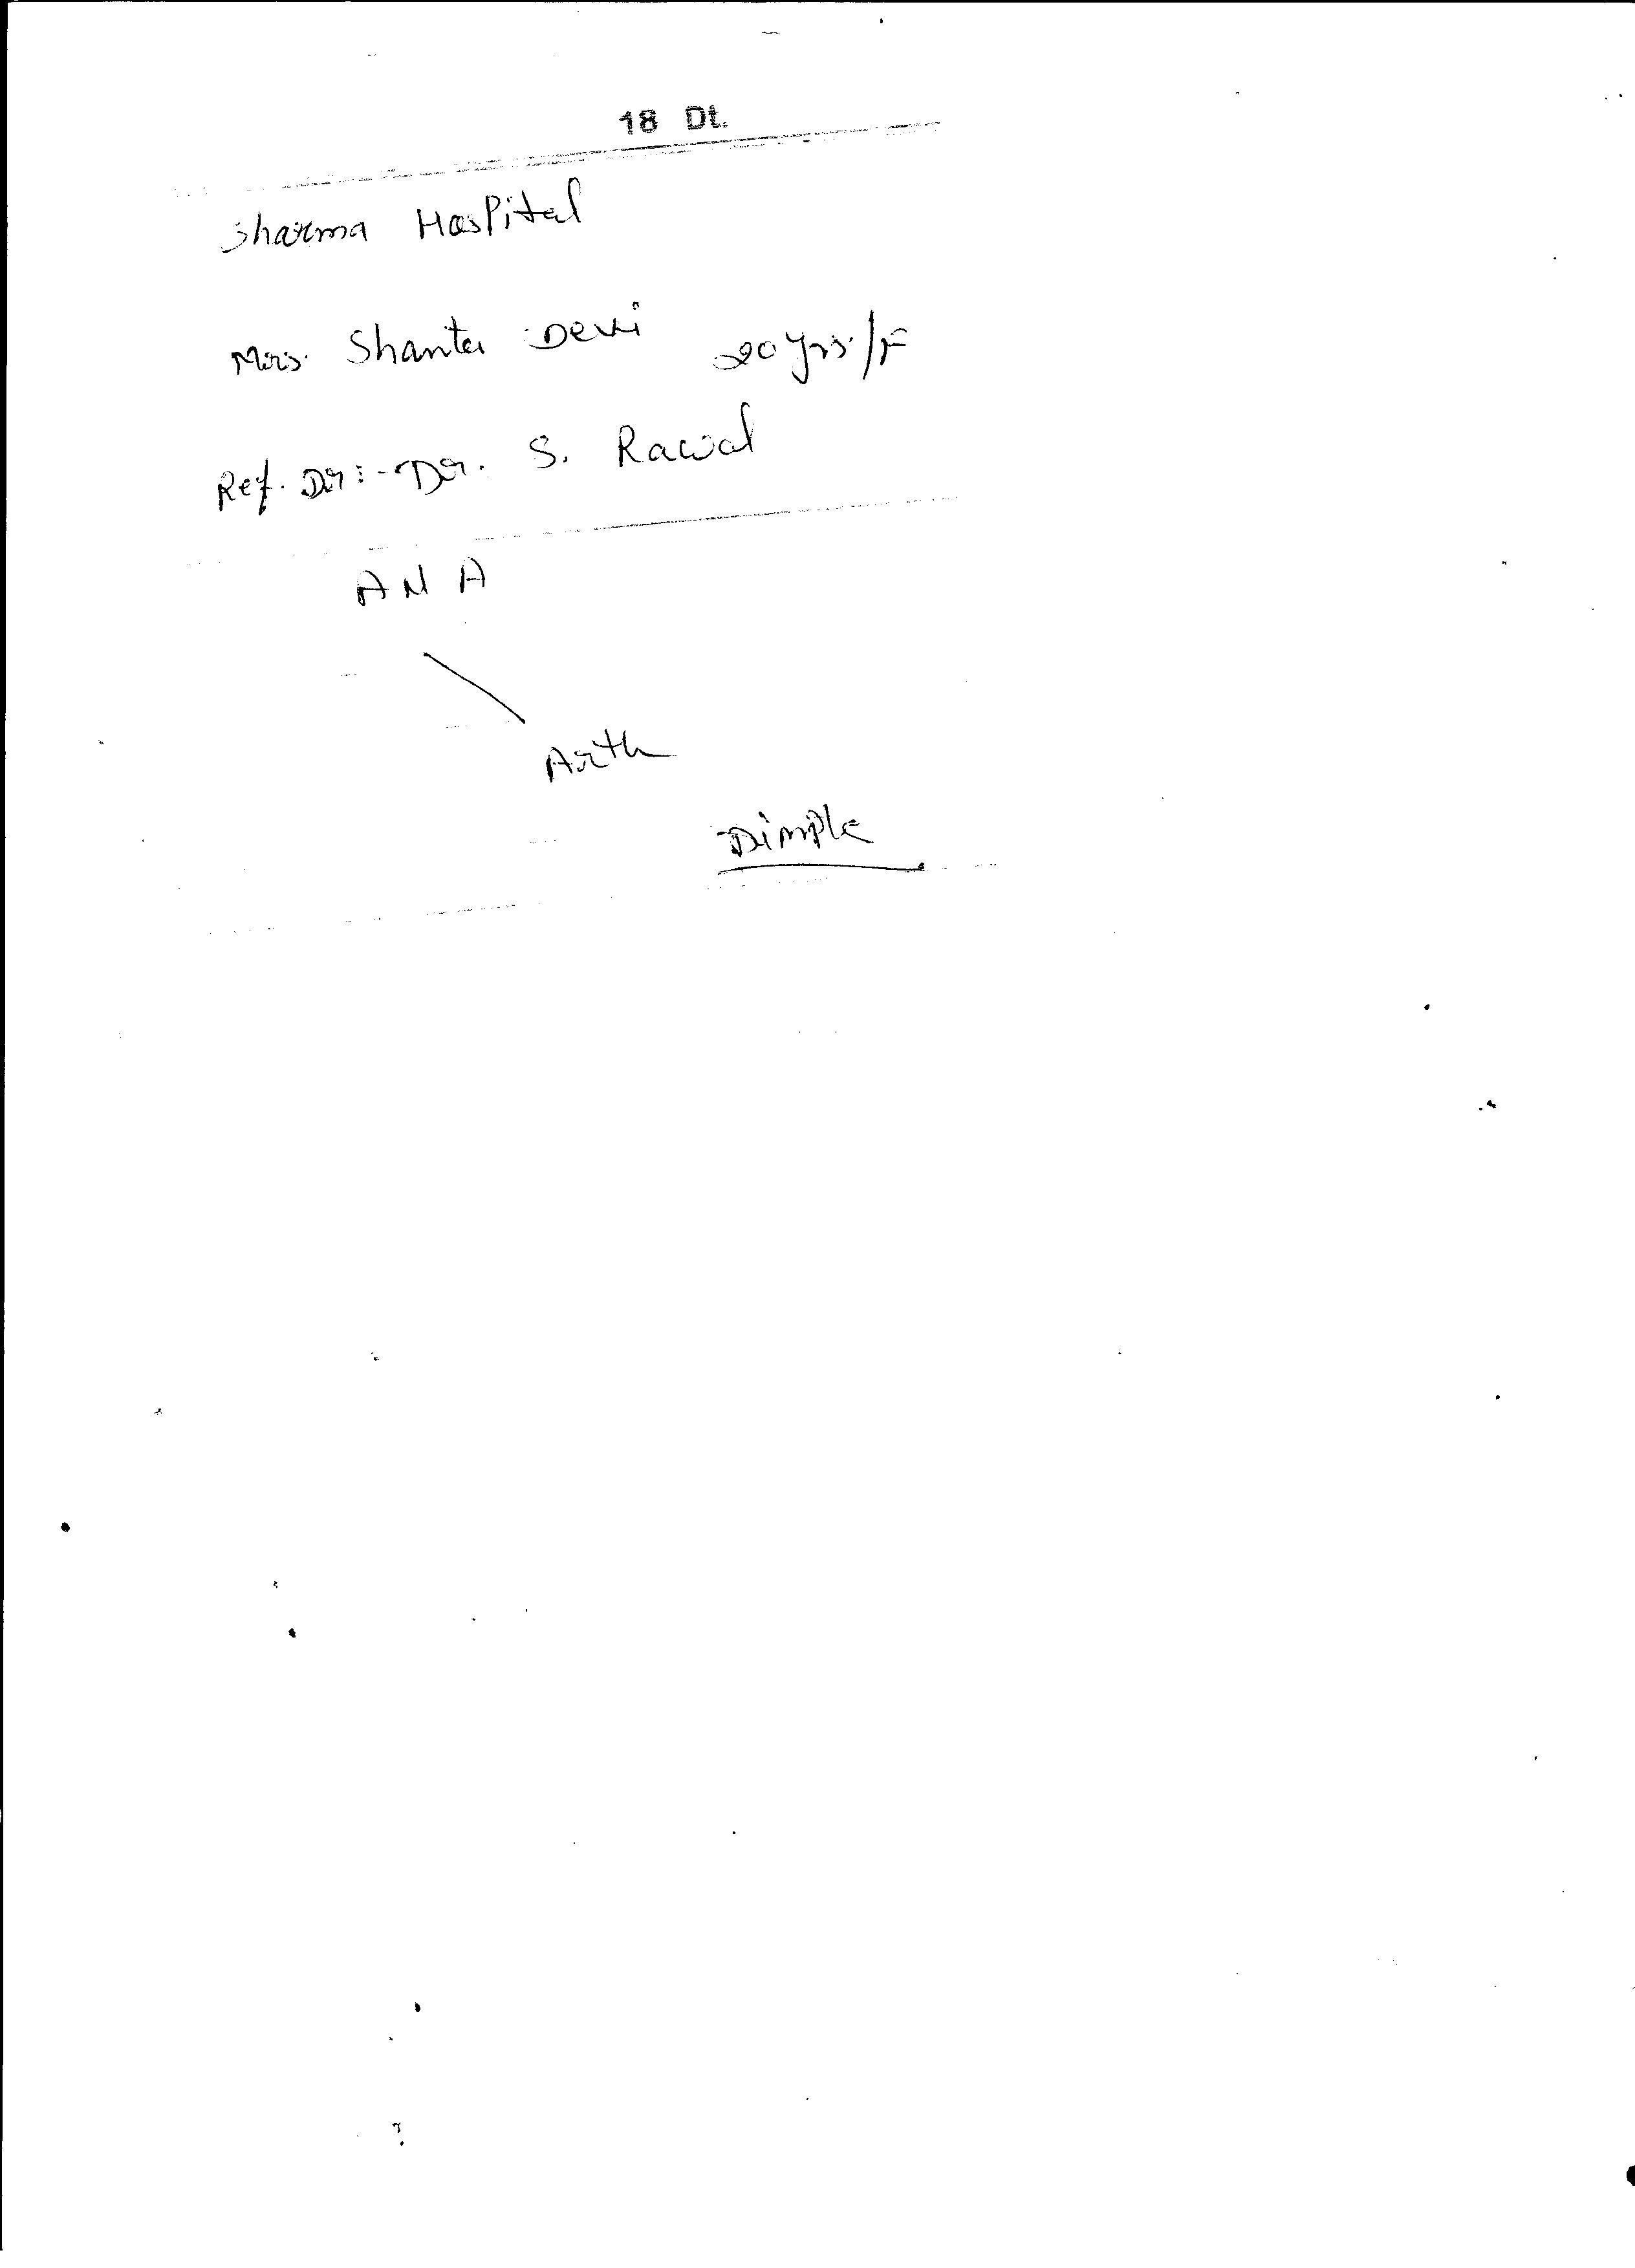 18 Dt.
Sharma Hospital
Mrs. Shanta Devi 20 yrs./F
Ref. Dr:- Dr. S. Rawal
ANA
Arth
Dimple